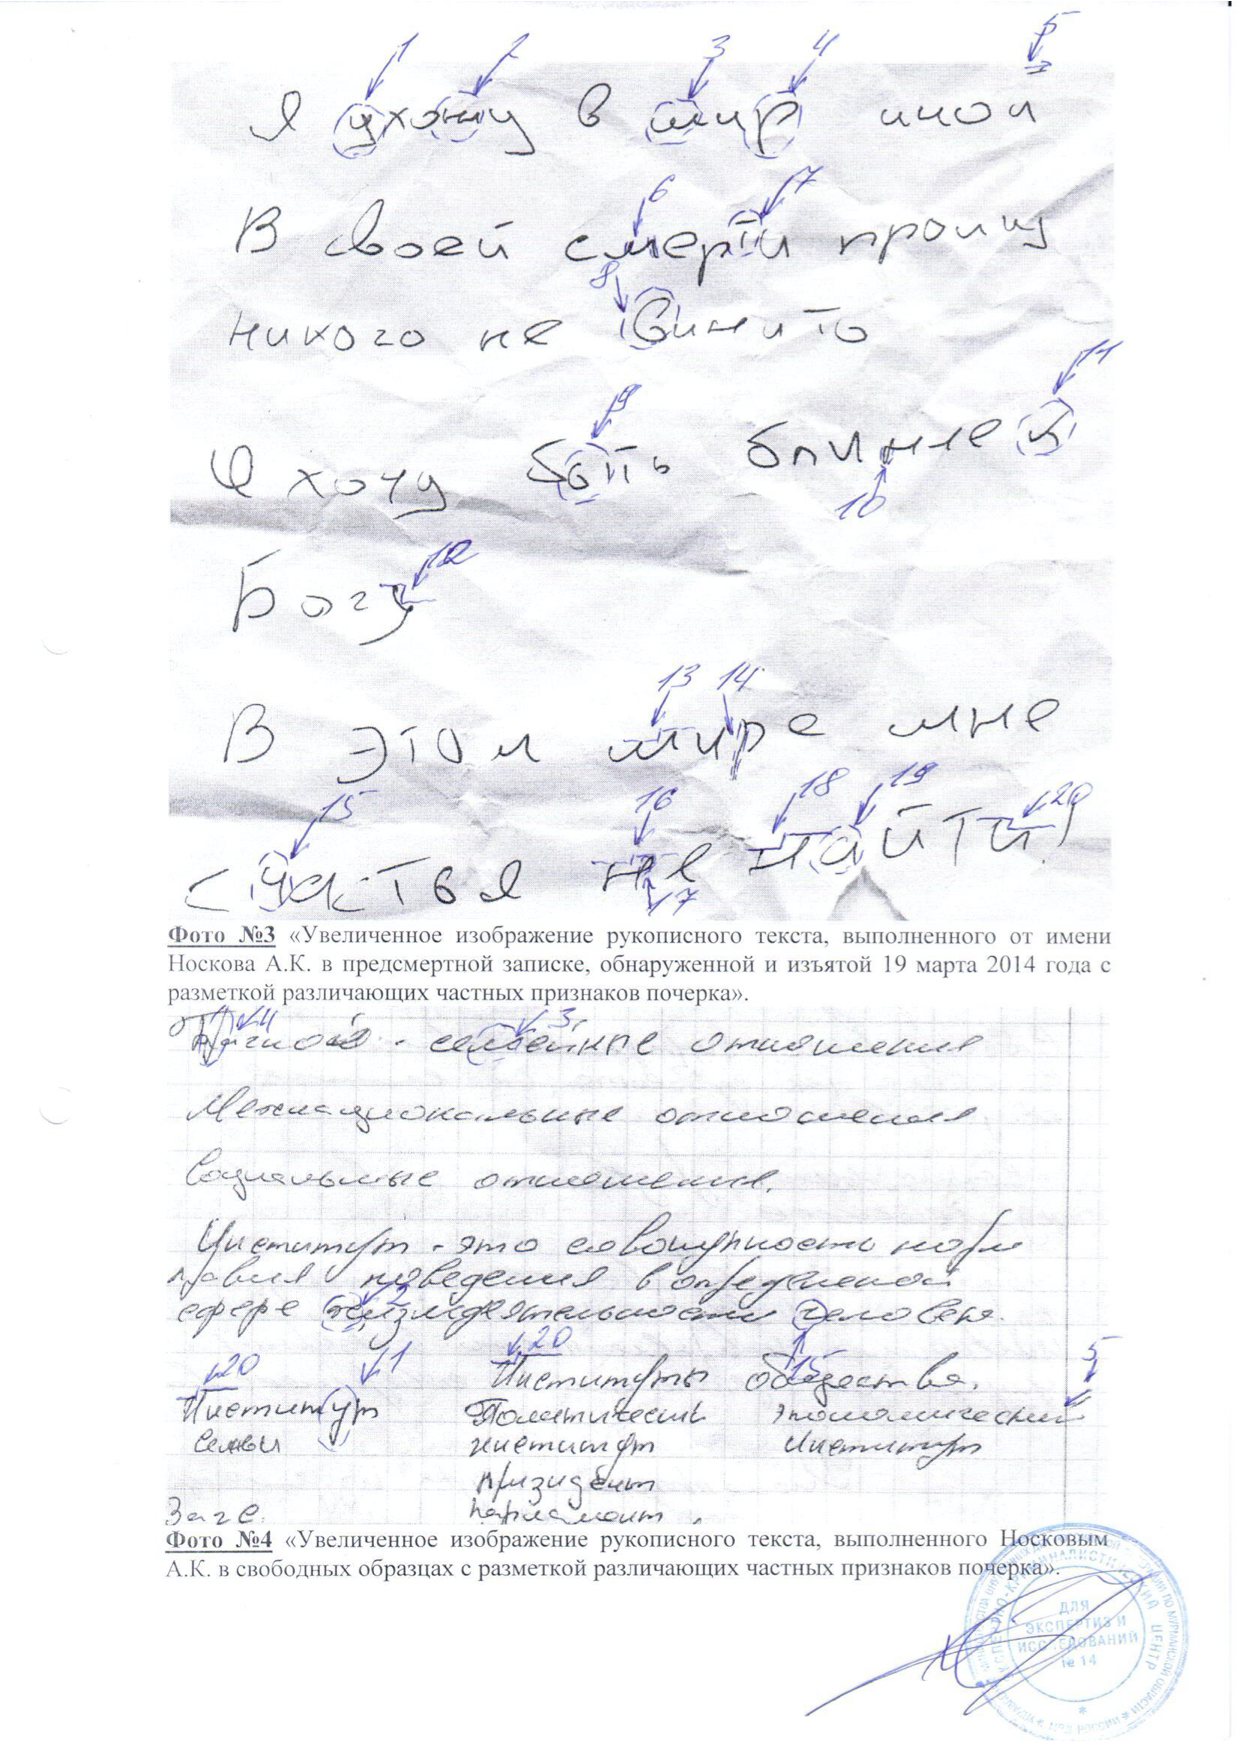 1 2 3 4 5
Я ухожу в мир иной
6 7
В своей смерти прошу
8
никого не винито
9 11
Я хочу быть ближнее к
10
12
Богу
13 14
В этом мире мне
15 16 18 19 20
счастья не найти!
17
Фото №3 «Увеличенное изображение рукописного текста, выполненного от имени
Носкова А.К. в предсмертной записке, обнаруженной и изъятой 19 марта 2014 года с
разметкой различающих частных признаков почерка».
4 3
- семейные отношения
Межнациональные отношения
Социальные отношения.
Институт - это совокупность норм
правил поведения в определенной
2
сфере жизнидеятельности человека.
20 1 20 15 5
Институты общества.
Институт Политический Экономический
семьи институт Институт
призидент
парламент
Фото №4 «Увеличенное изображение рукописного текста, выполненного Носковым
А.К. в свободных образцах с разметкой различающих частных признаков почерка».
ДЛЯ
ЭКСПЕРТИЗ И
ИССЛЕДОВАНИЙ
№ 14